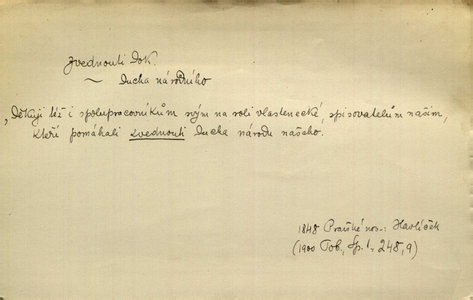 zvednouti dok.
~ ducha národního
„Děkuji též i spolupracovníkům svým na roli vlastenecké, spisovatelům našim,
kteří pomáhali zvednouti ducha národu našeho.
1848 Pražské nov.: Havlíček
(1900 Tob., Sp. 1. 248, 9)